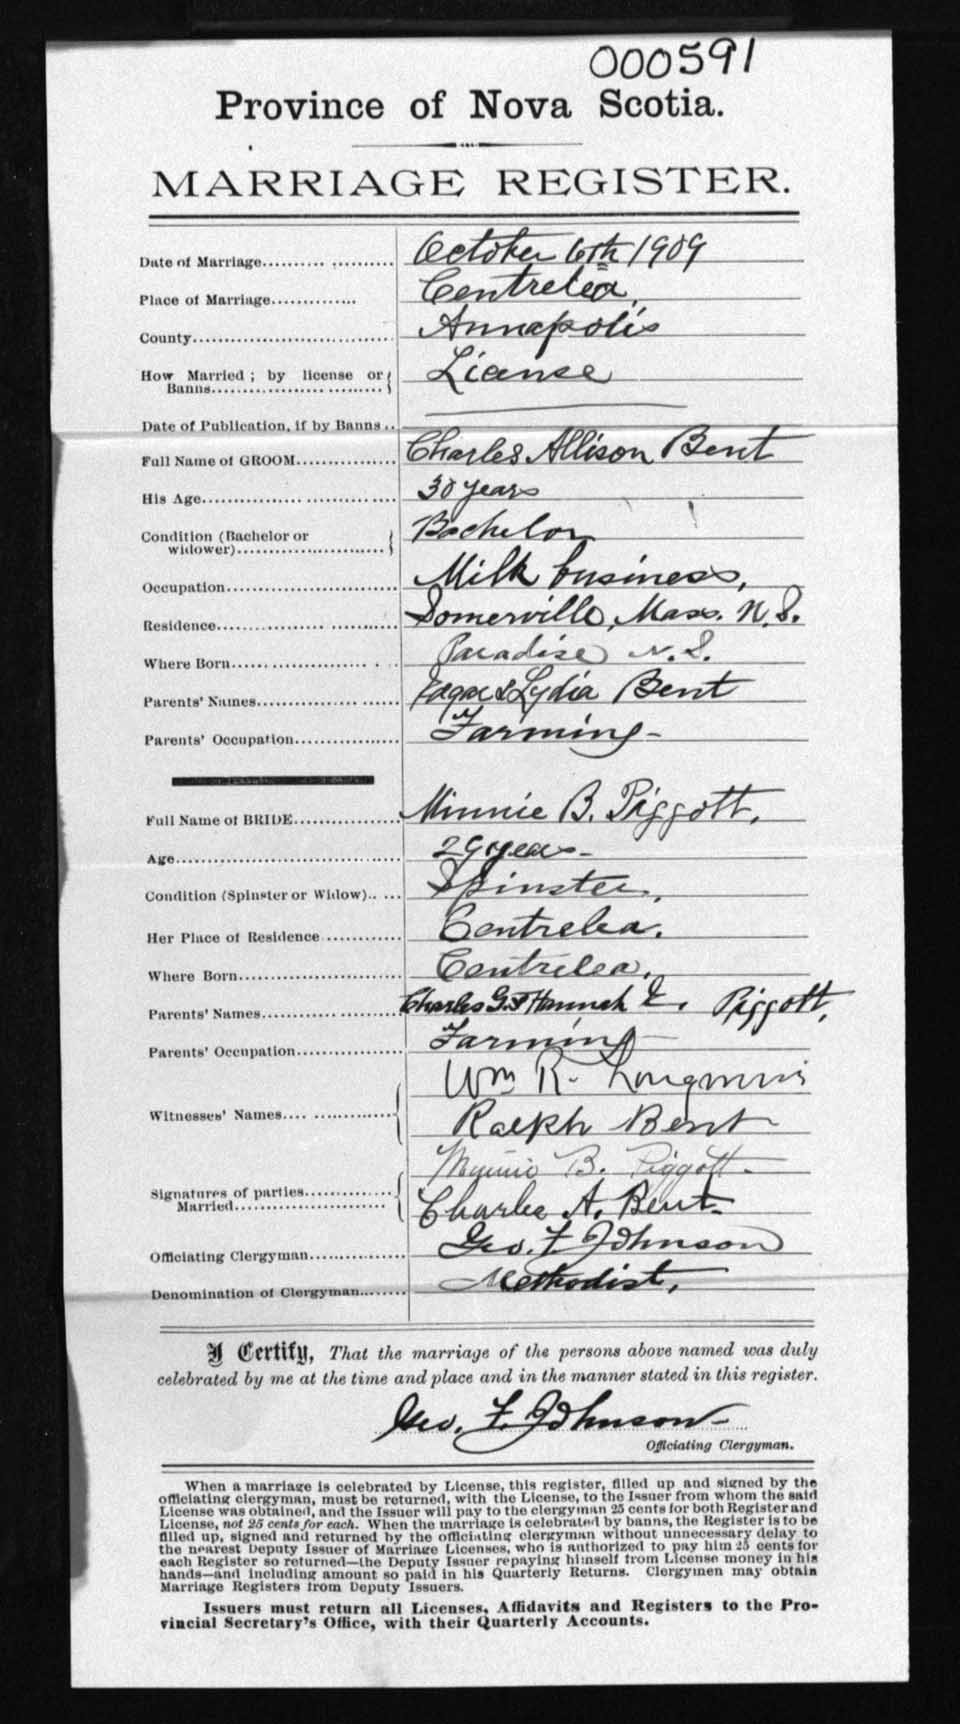 000591
Province of Nova Scotia.
MARRIAGE REGISTER.
Date of Marriage........... ........... October 6th 1909
Place of Marriage.............. Centrelea,
County................................. Annapolis
How Married; by license or Banns..................... License
Date of Publication, if by Banns ..
Full Name of GROOM................ Charles Allison Bent
His Age................................ 30 years
Condition (Bachelor or widower)........................ Bachelor
Occupation............................ Milk business,
Residence.................. .......... Somerville, Mass. N.S.
Where Born...................... . ... Paradise N.S.
Parents' Names................. ....... & Lydia Bent
Parents' Occupation................ Farming-
Full Name of BRIDE................. Minnie B. Piggott,
Age..................................... 29 years-
Condition (Spinster or Widow).. ... Spinster,
Her Place of Residence ............ Centrelea.
Where Born......................... Centrelea,
Parents' Names...................... Charles G. & Hannah E. Piggott,
Parents' Occupation................ Farming
Witnesses' Names.... .............. Wm R. Longmire
Ralph Bent
Minnie B. Piggott-
Signatures of parties.............
Married....................... Charles A. Bent-
Officiating Clergyman.............. Geo. F. Johnson
Denomination of Clergyman........ Methodist,
I Certify, That the marriage of the persons above named was duly
celebrated by me at the time and place and in the manner stated in this register.
Geo. F. Johnson-
Officiating Clergyman.
When a marriage is celebrated by License, this register, filled up and signed by the
officiating clergyman, must be returned, with the License, to the Issuer from whom the said
License was obtained, and the Issuer will pay to the clergyman 25 cents for both Register and
License, not 25 cents for each. When the marriage is celebrated by banns, the Register is to be
filled up, signed and returned by the officiating clergyman without unnecessary delay to
the nearest Deputy Issuer of Marriage Licenses, who is authorized to pay him 25 cents for
each Register so returned—the Deputy Issuer repaying himself from License money in his
hands—and including amount so paid in his Quarterly Returns. Clergymen may obtain
Marriage Registers from Deputy Issuers.
Issuers must return all Licenses, Affidavits and Registers to the Pro-
vincial Secretary's Office, with their Quarterly Accounts.